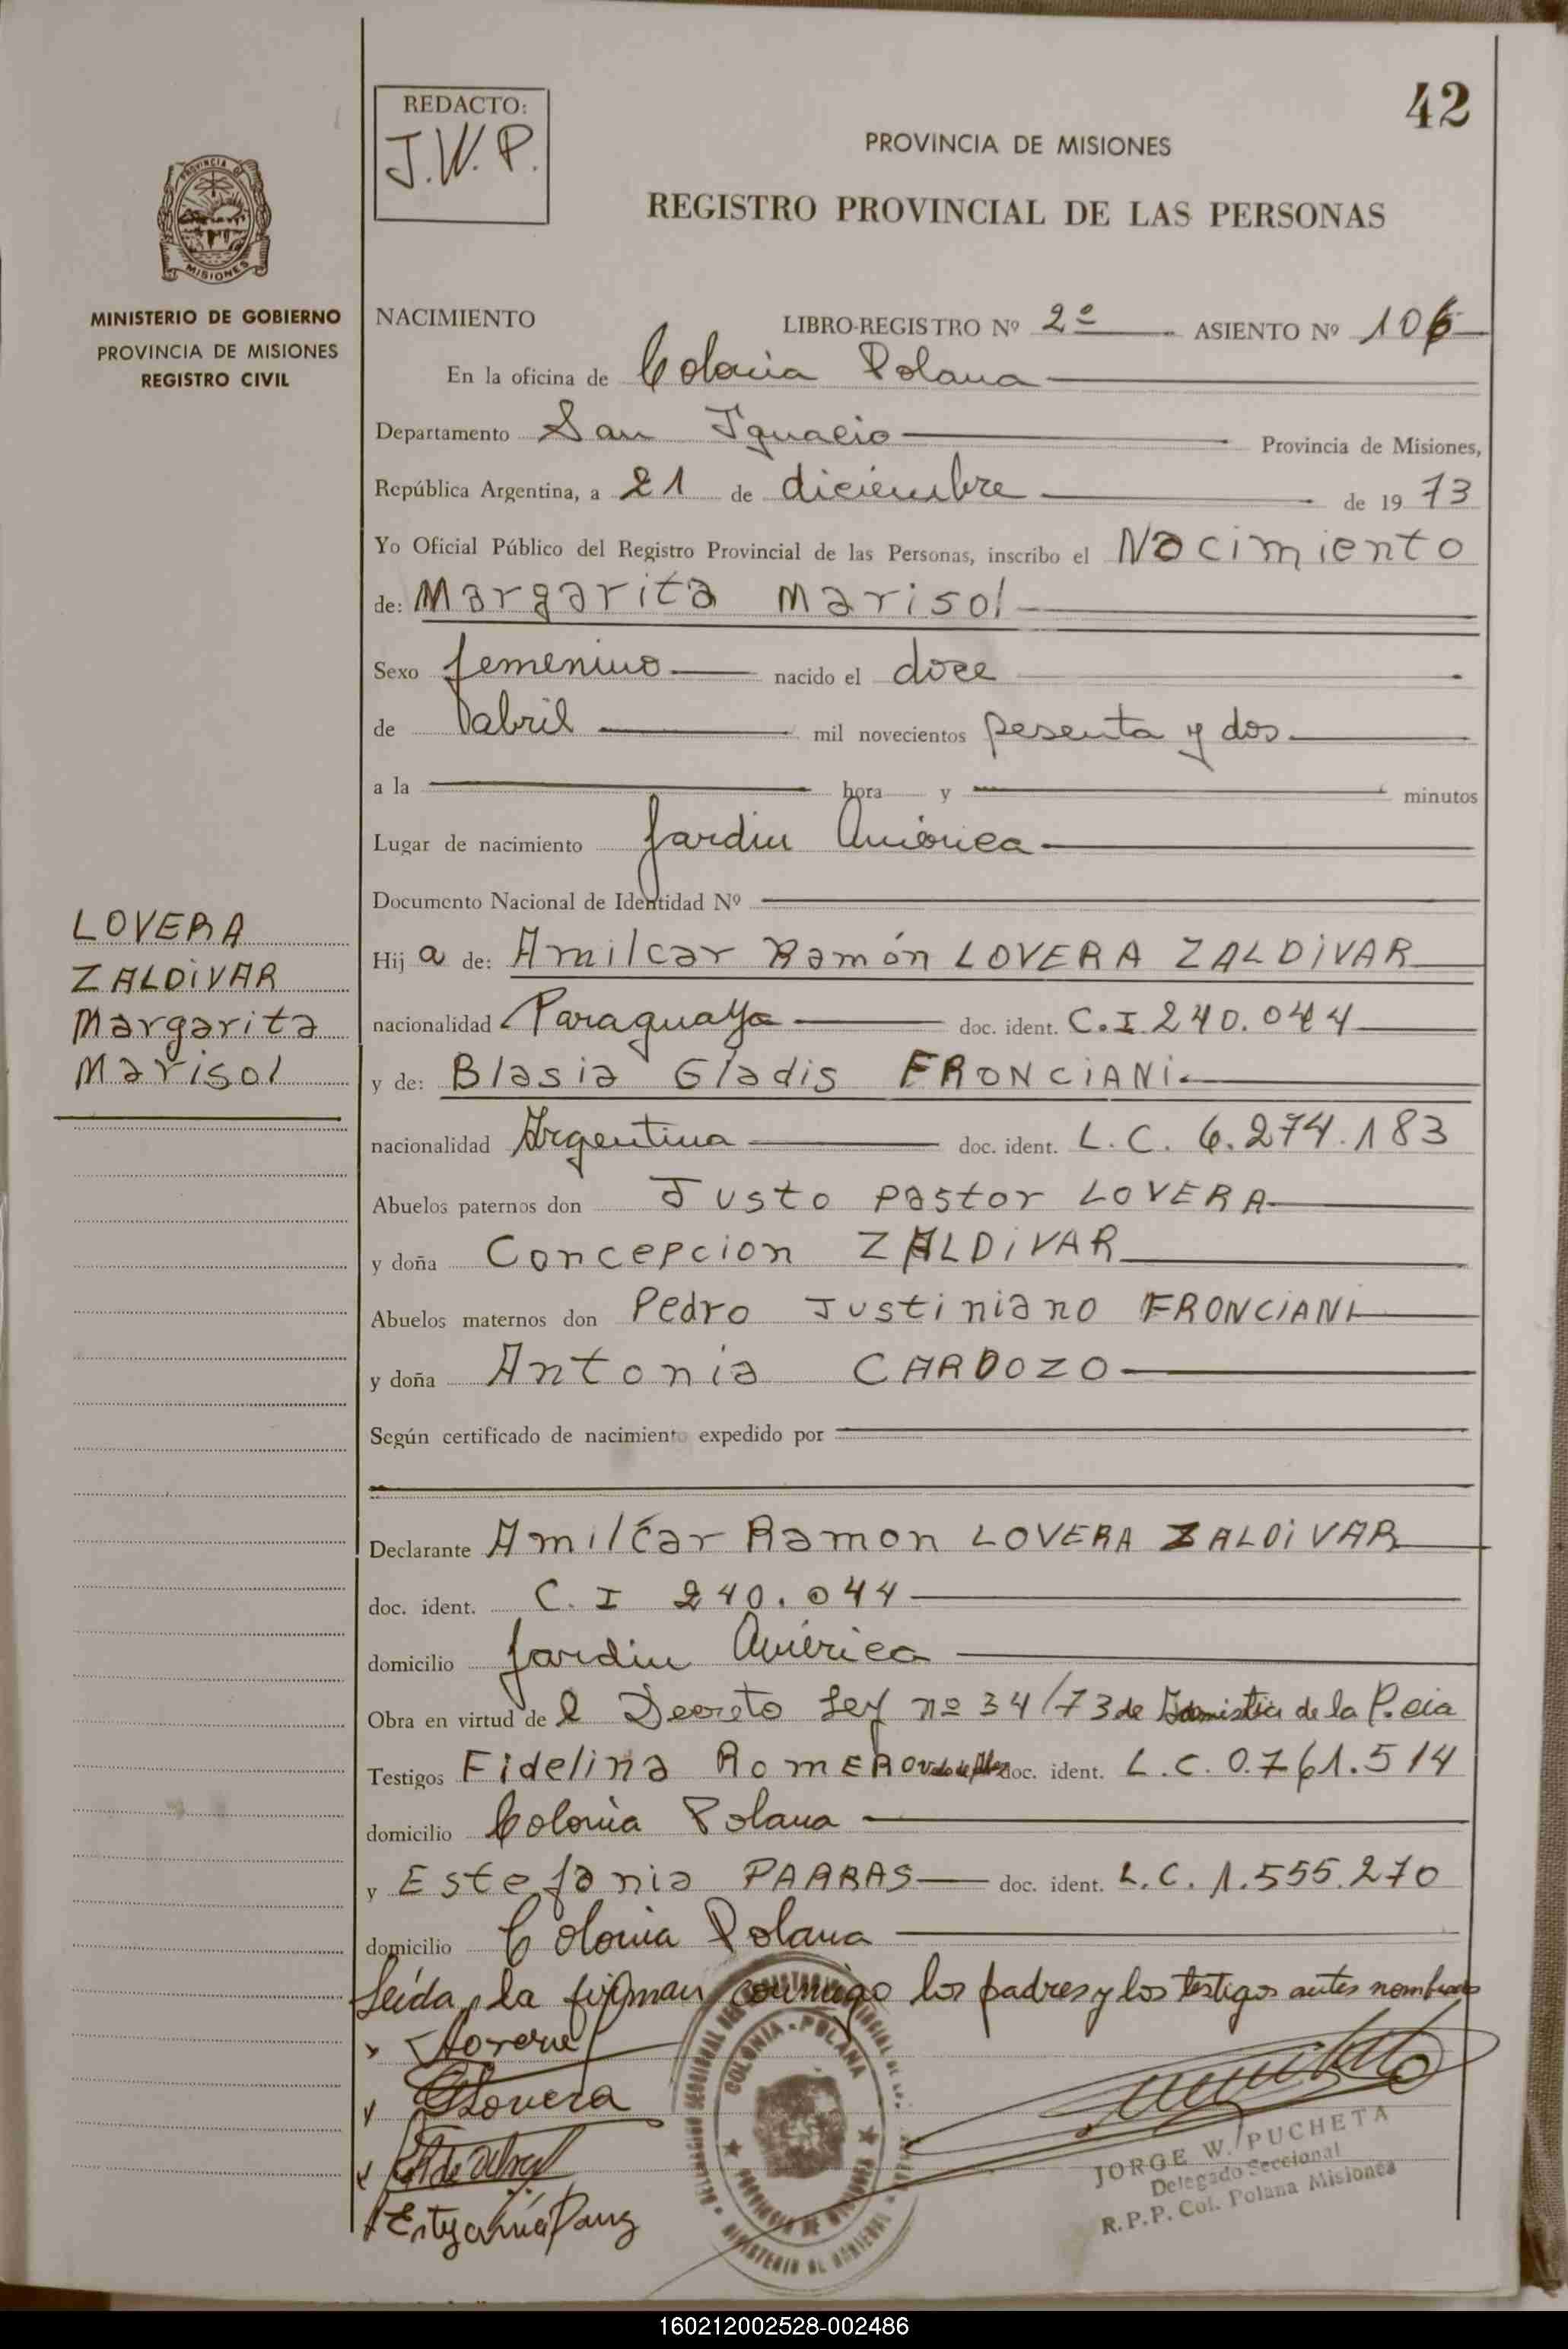 42
REDACTO:
J.W.P.
PROVINCIA DE MISIONES
REGISTRO PROVINCIAL DE LAS PERSONAS
PROVINCIA DE
MISIONES
MINISTERIO DE GOBIERNO
PROVINCIA DE MISIONES
REGISTRO CIVIL
NACIMIENTO LIBRO-REGISTRO Nº 2º ASIENTO Nº 106
En la oficina de Colonia Polana
Departamento San Ignacio Provincia de Misiones,
República Argentina, a 21 de diciembre de 1973
Yo Oficial Público del Registro Provincial de las Personas, inscribo el Nacimiento
de: Margarita Marisol
Sexo femenino nacido el doce
de abril mil novecientos sesenta y dos
a la hora y minutos
Lugar de nacimiento Jardin América
Documento Nacional de Identidad Nº
LOVERA
ZALDIVAR
Margarita
Marisol
Hija de: Amilcar Ramón LOVERA ZALDIVAR
nacionalidad Paraguaya doc. ident. C.I 240.044
y de: Blasia Gladis FRONCIANI
nacionalidad Argentina doc. ident. L.C. 6.274.183
Abuelos paternos don Justo Pastor LOVERA
y doña Concepcion ZALDIVAR
Abuelos maternos don Pedro Justiniano FRONCIANI
y doña Antonia CARDOZO
Según certificado de nacimiento expedido por
Declarante Amilcar Ramon LOVERA ZALDIVAR
doc. ident. C. I 240.044
domicilio Jardin América
Obra en virtud de l Decreto Ley nº 34/73 de de la P.cia
Testigos Fidelina ROMERO doc. ident. L.C. 0.761.514
domicilio Colonia Polana
y Estefania PARRAS doc. ident. L.C. 1.555.270
domicilio Colonia Polana
Leída, la firman conmigo los padres y los testigos antes nombrados
Lovera
COLONIA - POLANA
PROVINCIA DE MISIONES
MINISTERIO DE GOBIERNO
JORGE W. PUCHETA
Delegado Seccional
R.P.P. Col. Polana Misiones
160212002528-002486